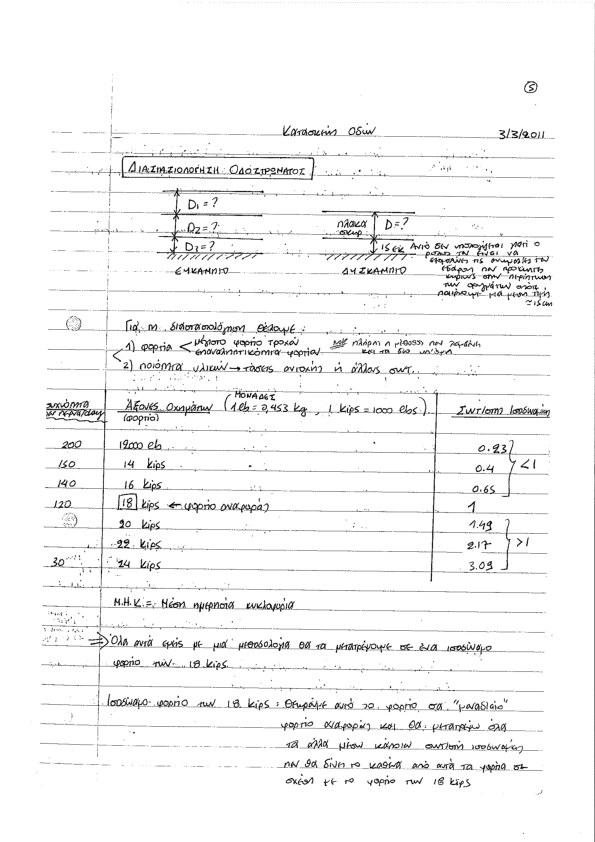 5
Κατασκευή Οδών 3/3/2011
ΔΙΑΣΤΑΣΙΟΛΟΓΗΣΗ ΟΔΟΣΤΡΩΜΑΤΟΣ
D1 = ?
D2 = ?
D3 = ?
ΕΥΚΑΜΠΤΟ
πλάκα σκυρ.
D = ?
15 εκ. Αυτό δεν υπολογίζεται γιατί ο
ρόλος του είναι να
ΔΥΣΚΑΜΠΤΟ
παίρνουμε μια μέση τιμή
≈ 15cm
Για τη διαστασιολόγηση θέλουμε:
1) φορτία < μέγιστο φορτίο τροχού
επαναληπτικότητα φορτίου
και τα δύο
2) ποιότητα υλικών → τάσεις αντοχής ή άλλους συντ.
ΜΟΝΑΔΕΣ
συχνότητα Άξονες Οχημάτων (1 lb = 0,453 kg , 1 kips = 1000 lbs) Συντ/στη Ισοδυναμίας
(φορτίο)
200 12000 lb 0.23
150 14 kips 0.4 < 1
140 16 kips 0.65
120 18 kips ← φορτίο αναφοράς 1
20 kips 1.49
22 kips 2.17 > 1
30 24 kips 3.09
Μ.Η.Κ. = Μέση ημερησία κυκλοφορία
⇒ Όλα αυτά εμείς με μιά μεθοδολογία θα τα μετατρέψουμε σε ένα ισοδύναμο
φορτίο των 18 kips.
Ισοδύναμο φορτίο των 18 kips : Θεωρούμε αυτό το φορτίο σα "μοναδιαίο"
φορτίο αναφοράς και θα μετατρέψω όλα
τα άλλα μέσω κάποιων συντ/στή ισοδυναμίας
που θα δίνει το καθένα από αυτά τα φορτία σε
σχέση με το φορτίο των 18 kips